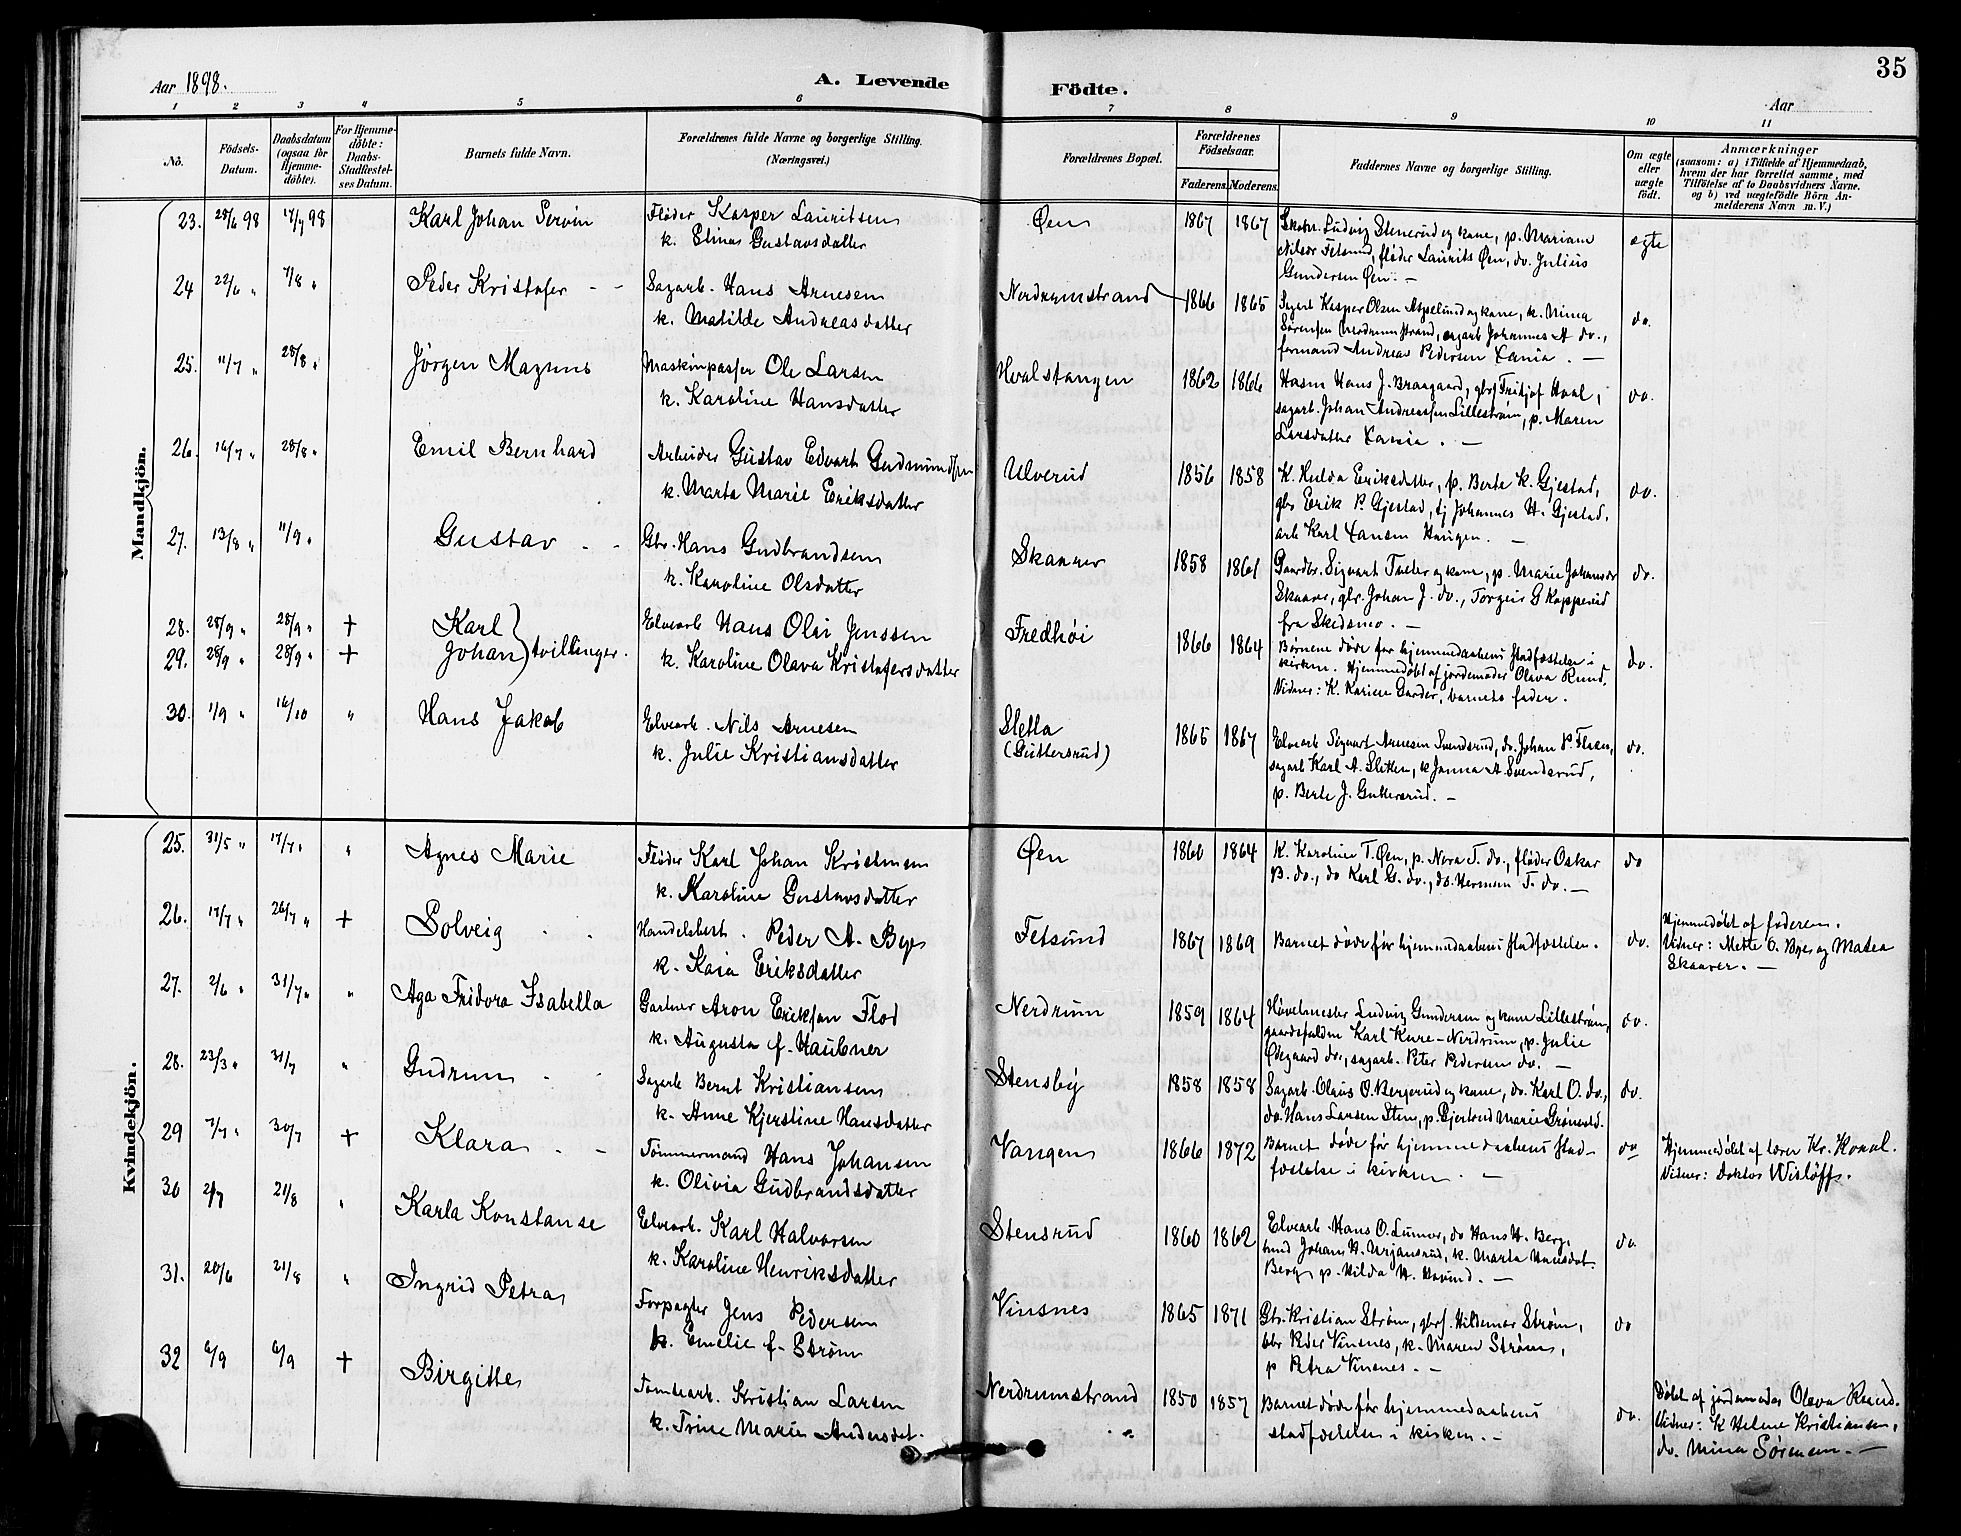 35
Aar 1898.
A. Levende Födte.
Aar
1 2 3 4 5 6 7 8 9 10 11
No.
Födsels-Datum.
Daabsdatum (ogsaa for Hjemme-döbte).
For Hjemme-döbte: Daabs-Stadfæstel-ses Datum.
Barnets fulde Navn.
Forældrenes fulde Navne og borgerlige Stilling.
(Næringsvei.)
Forældrenes Bopæl.
Forældrenes Födselsaar.
Faderens. Moderens.
Faddernes Navne og borgerlige Stilling.
Om ægte eller uægte födt.
Anmærkninger
(saasom: a) i Tilfælde af Hjemmedaab, hvem der har forrettet samme, med Tilföielse af to Daabsvidners Navne. og b) ved uægtefödte Börn An-melderens Navn m. V.)
Mandkjön.
23. 28/6 98 17/7 98 Karl Johan Servin Fløder Kasper Lauritsen Øen 1867 1867 Ludvig Stenerud og kone, p. Mariane ægte
k. Elina Gustavsdatter Nilsen Fetsund, fløder Laurits Øen, do. Julius
Gundersen Øen. –
24 22/6 " 7/8 " Peder Kristofer – – Sagarb. Hans Arnesen Nerdrumstrand 1866 1865 Sagarb Kasper Olsen Aspelund og kone, k. Mina do.
k. Matilde Andreasdatter Sørensen Nerdrumstrand, sagarb Johannes A do.,
formand Andreas Pedersen Xania. –
25. 11/7 " 28/8 " Jörgen Magnus Maskinpasser Ole Larsen Hvalstangen 1862 1866 Husm Hans J. Braagaard, gbrs Fridtjof Hval, do.
k. Karoline Hansdatter sagarb. Johan Andreassen Lillestrøm, p. Maren
Larsdatter Xania. –
26. 16/7 " 28/8 " Emil Bernhard Arbeider Gustav Edvart Gudmundsen Ulverud 1856 1858 K. Hulda Eriksdatter, p. Berte K. Gjestad, do.
k. Marta Marie Eriksdatter gbr Erik P. Gjestad, tj Johannes H. Gjestad,
arb Karl Jansen Haugen. –
27. 13/8 " 11/9 " Gustav – – Gbr. Hans Gudbrandsen Skaarer 1858 1861 Gaardbr. Sigvart Tveter og kone, p. Marie Johansdr do.
k. Karoline Olsdatter Skaarer, gbr. Johan J. do., Torgeir G Kopperud
fra Skedsmo. –
28. 28/9 " 28/9 " + Karl Elvearb Hans Olai Jenssen Fredhøi 1866 1864 Børnene døde før hjemmedaabens stadfæstelse i do.
29. 28/9 " 28/9 " + Johan } tvillinger. k. Karoline Olava Kristofersdatter kirken. Hjemmedøbt af jordemoder Olava Rund.
Vidner: K. Karine Garder, barnets fader.
30. 1/9 " 16/10 " Hans Jakob Elvearb. Nils Arnesen Sletta 1865 1867 Elvearb Sigvart Arnesen Svendsrud, do. Johan P. Flaen, do.
k. Julie Kristiansdatter (Guttersrud) sagarb Karl A. Sletten, k Janna A. Svendsrud,
p. Berte J. Guttersrud. –
Kvindekjön.
25. 31/5 " 17/7 " " Agnes Marie Fløder Karl Johan Kristensen Øen 1860 1864 K. Karoline T. Øen, p. Nora T. do., fløder Oskar do
k. Karoline Gustavsdatter B. do., do Karl G. do., do. Herman T. do. –
26. 17/7 " 26/7 " + Solveig Handelsbest. Peder A. Bye Fetsund 1867 1869 Barnet døde før hjemmedaabens stadfæstelse. do. Hjemmedøbt af faderen.
k. Kaia Eriksdatter Vidner: Mette O. Bye og Matea
Skaarer. –
27. 2/6 " 31/7 " " Aga Fridora Isabella Gartner Aron Eriksen Flod Nerdrum 1859 1864 Høvelmester Ludvig Gundersen og kone Lillestrøm, do.
k. Augusta f. Haubner gaardsfuldm Karl Kure – Nerdrum, p. Julie
Ødegaard do., sagarb. Peter Pedersen do. –
28. 23/3 " 31/7 " Gudrun Sagarb Bernt Kristiansen Stensby 1858 1858 Sagarb. Olaus O. Bergerud og kone, do. Karl O. do., do.
k. Anne Kjerstine Hansdatter do. Hans Larsen Sten, p. Gjertrud Marie Grønvold.
29 7/7 " 30/7 + Klara Tømmermand Hans Johansen Vangen 1866 1872 Barnet døde før hjemmedaabens stad- do Hjemmedøbt af lærer Kr. Kval.
k. Olivia Gudbrandsdatter fæstelse i kirken. – Vidner: Doktor Wisløff.
30 2/7 21/8 " Karla Konstanse Elvearb. Karl Halvorsen Stensrud 1860 1862 Elvearb. Hans O. Lunner, do Hans H. Berg, do.
k. Karoline Henriksdatter Johan H. Ørjansrud, k. Marta Hansdat.
Berg, p. Hilda H. –
31. 20/6 21/8 " Ingrid Petra Forpagter Jens Pedersen Vinsnes 1865 1871 Gbr. Kristian Strøm, gbrs. Hildemar Strøm, do
k. Emelie f. Strøm gbr Peder Vinsnes, k. Maren Strøm,
p Petra Vinsnes. –
32 6/9 6/9 + Birgitte Tomtearb. Kristian Larsen Nerdrumstrand 1850 1857 Barnet døde før hjemmedaabens do. Døbt af jordemoder Olava Rund.
k. Trine Marie Andersdat. stadfæstelse i kirken. – Vidner: K Helene Kristiansen,
do. Mina Sørensen. –